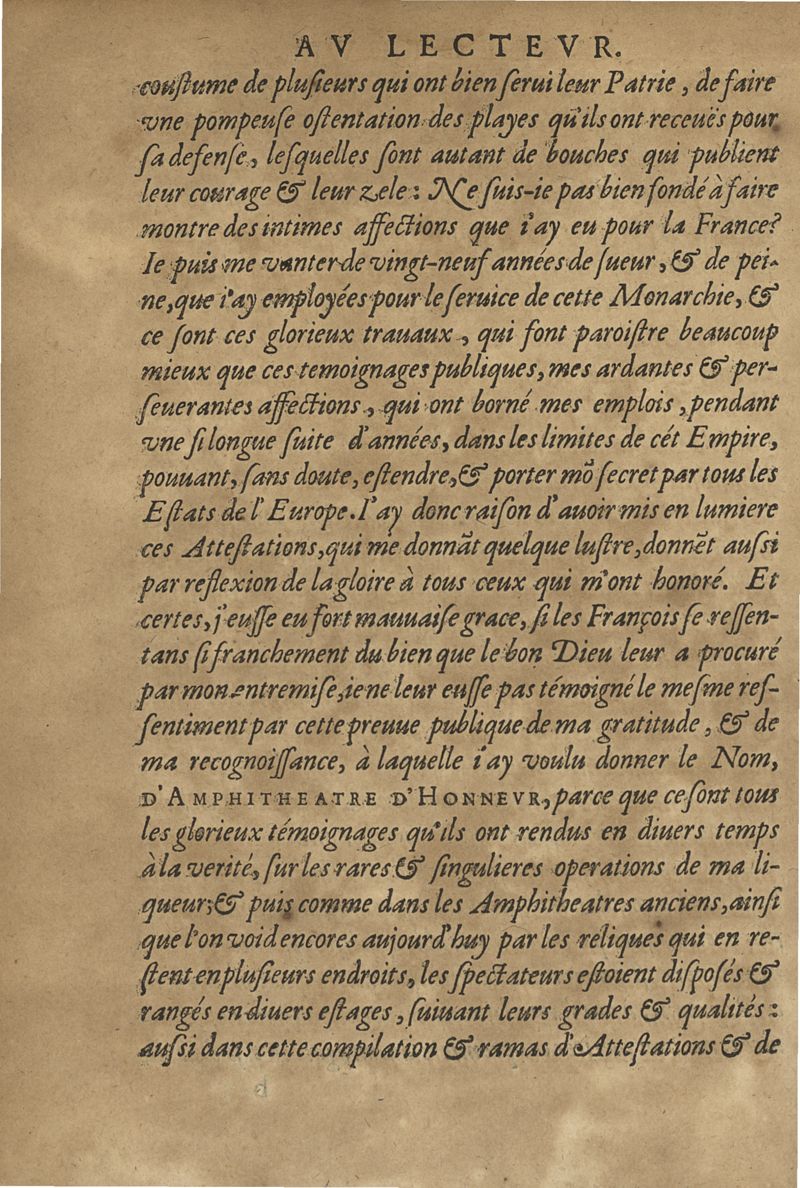 AV LECTEVR.
couſtume de pluſieurs qui ont bien ſerui leur Patrie, de faire
vne pompeuſe oſtentation des playes qu'ils ont receuës pour
ſa defenſe, leſquelles ſont autant de bouches qui publient
leur courage & leur zele: Ne ſuis-ie pas bien fondé à faire
montre des intimes affections que i'ay eu pour la France?
Ie puis me vanter de vingt-neuf années de ſueur, & de pei-
ne, que i'ay employées pour le ſeruice de cette Monarchie, &
ce ſont ces glorieux trauaux, qui font paroiſtre beaucoup
mieux que ces temoignages publiques, mes ardantes & per-
ſeuerantes affections, qui ont borné mes emplois, pendant
vne ſi longue ſuite d'années, dans les limites de cét Empire,
pouuant, ſans doute, eſtendre, & porter mõ ſecret par tous les
Eſtats de l'Europe. I'ay donc raiſon d'auoir mis en lumiere
ces Atteſtations, qui me donnãt quelque luſtre, donnẽt auſſi
par reflexion de la gloire à tous ceux qui m'ont honoré. Et
certes, j'euſſe eu fort mauuaiſe grace, ſi les François ſe reſſen-
tans ſi franchement du bien que le bon Dieu leur a procuré
par mon entremiſe, ie ne leur euſſe pas témoigné le meſme reſ-
ſentiment par cette preuue publique de ma gratitude, & de
ma recognoiſſance, à laquelle i'ay voulu donner le Nom,
D'AMPHITHEATRE D'HONNEVR, parce que ce ſont tous
les glorieux témoignages qu'ils ont rendus en diuers temps
à la verité, ſur les rares & ſingulieres operations de ma li-
queur; & puis comme dans les Amphitheatres anciens, ainſi
que l'on void encores aujourd'huy par les reliques qui en re-
ſtent en pluſieurs endroits, les ſpectateurs eſtoient diſpoſés &
rangés en diuers eſtages, ſuiuant leurs grades & qualités:
auſſi dans cette compilation & ramas d'Atteſtations & de